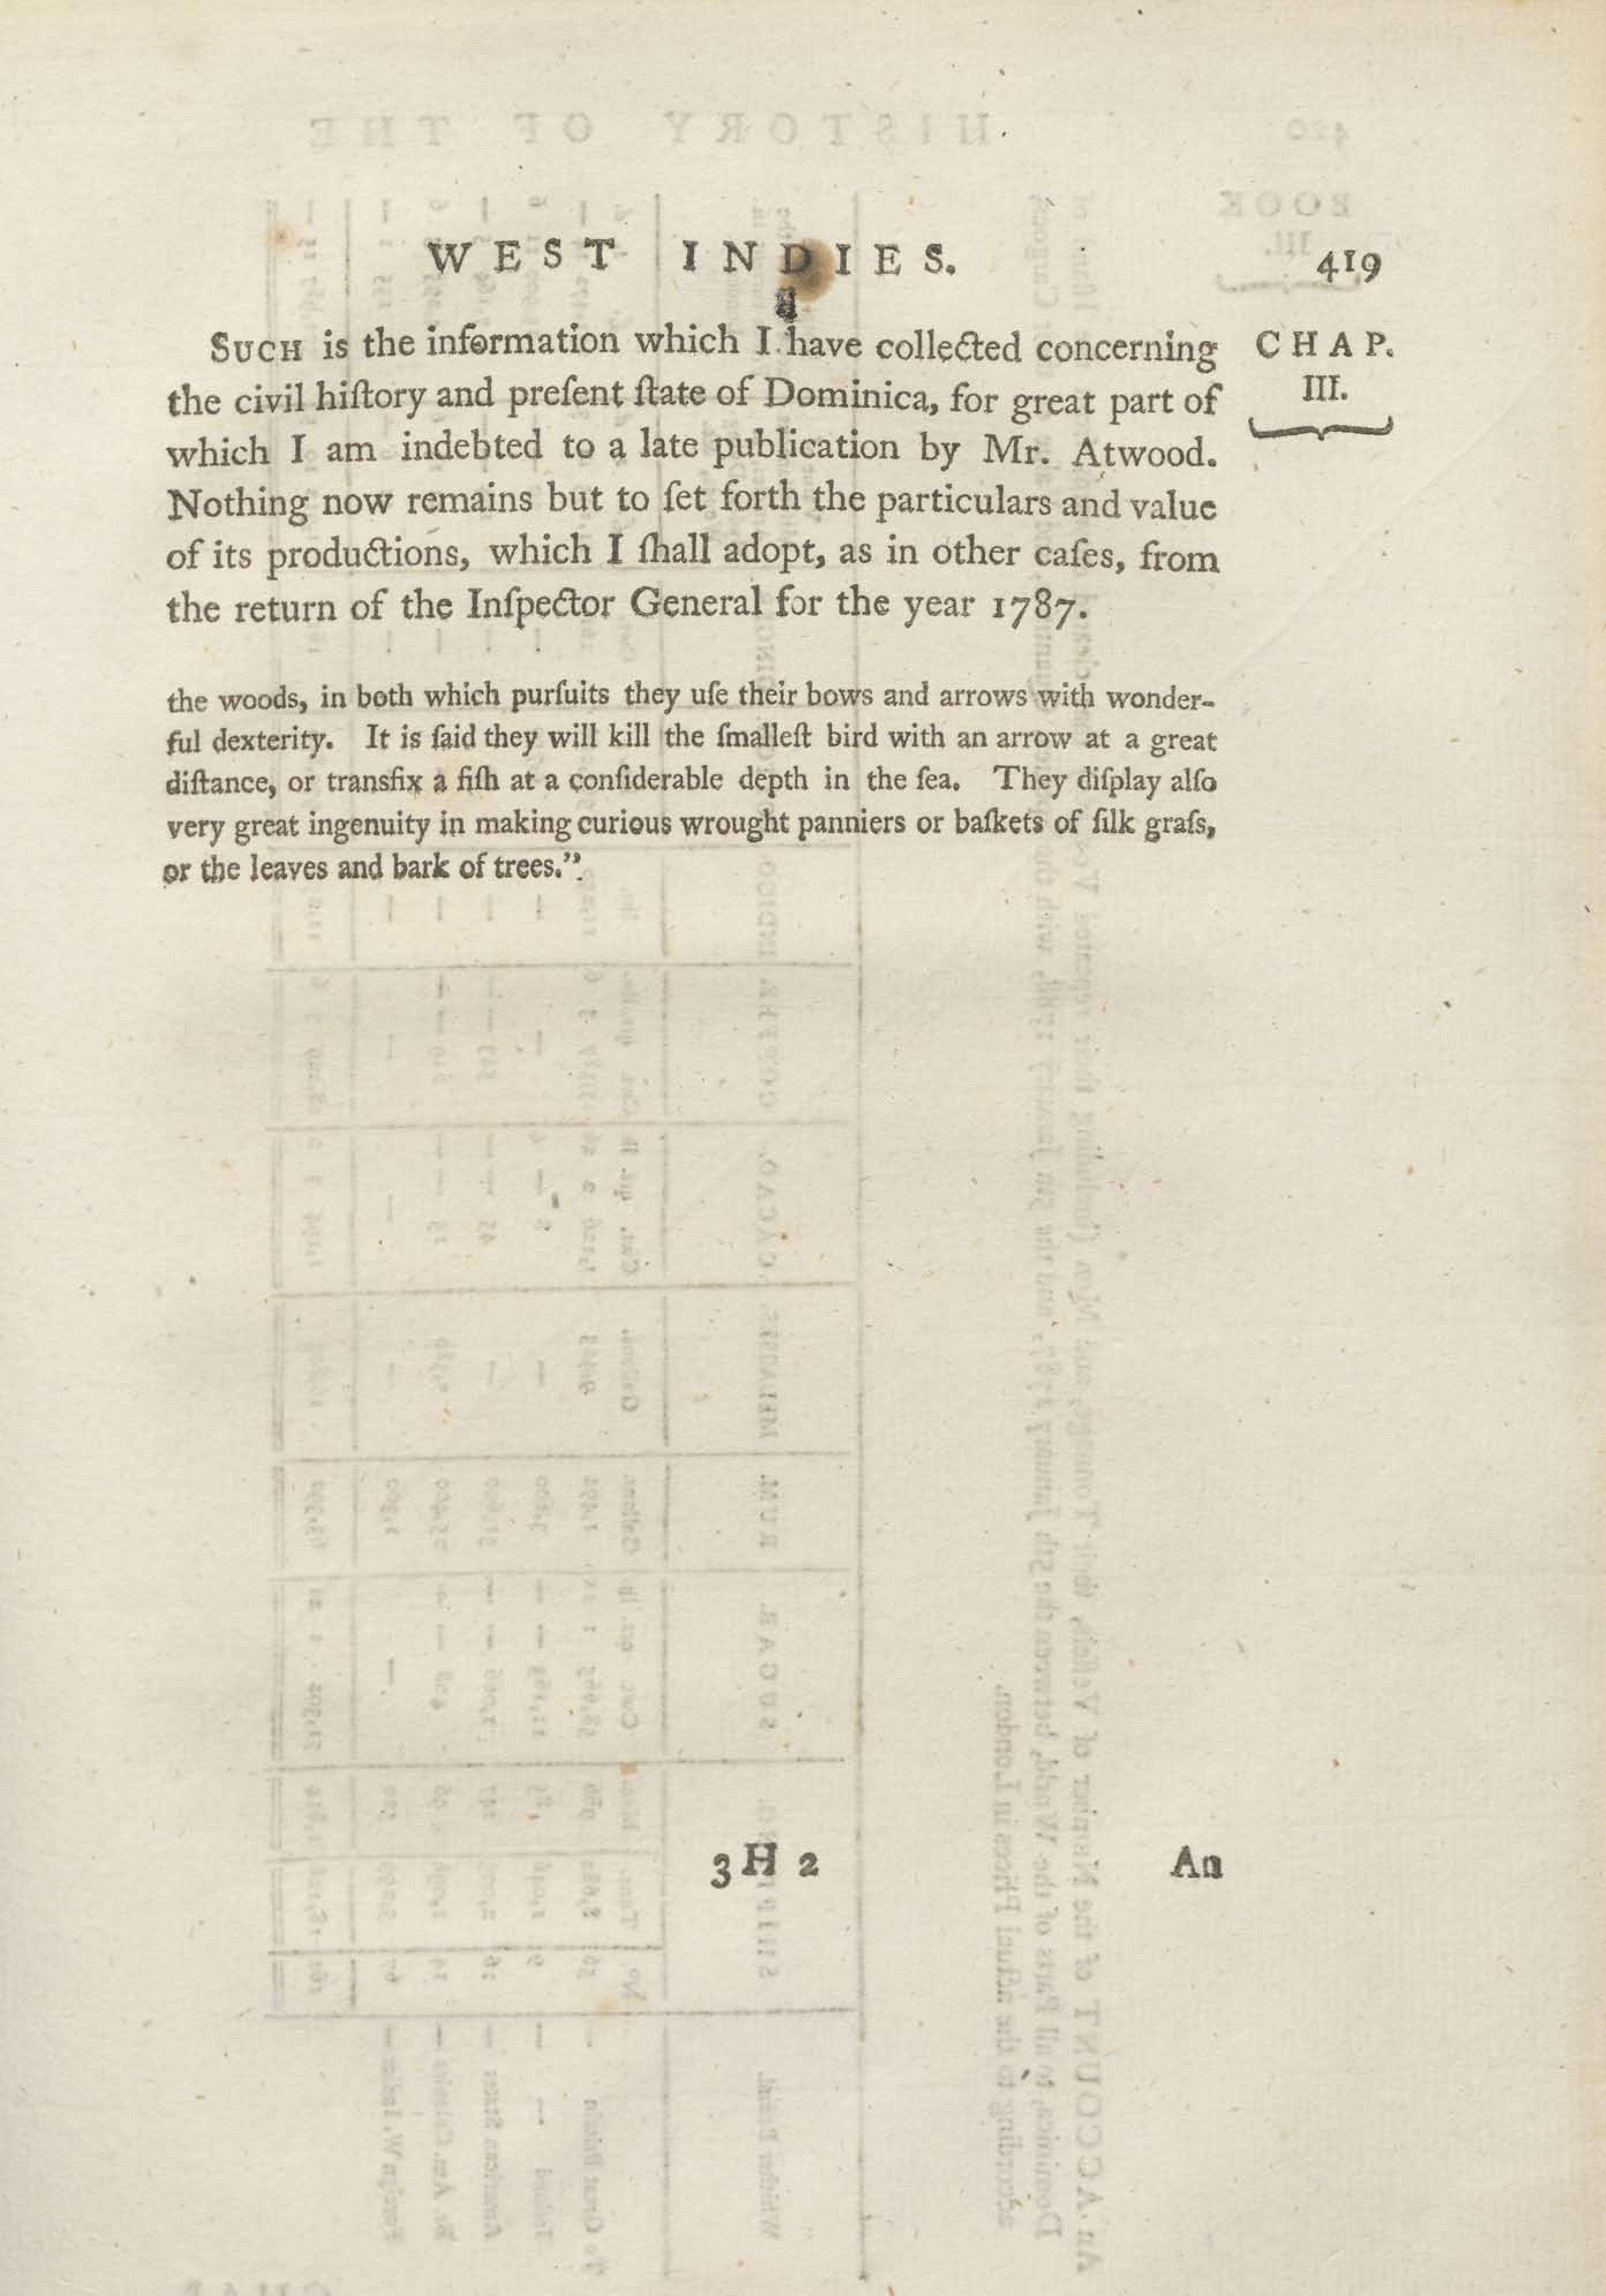 WEST INDIES.
419
CHAP.
III.
SUCH is the information which I have collected concerning
the civil hiſtory and preſent ſtate of Dominica, for great part of
which I am indebted to a late publication by Mr. Atwood.
Nothing now remains but to ſet forth the particulars and value
of its productions, which I ſhall adopt, as in other caſes, from
the return of the Inſpector General for the year 1787.
the woods, in both which purſuits they uſe their bows and arrows with wonder-
ful dexterity. It is ſaid they will kill the ſmalleſt bird with an arrow at a great
diſtance, or transfix a fiſh at a conſiderable depth in the ſea. They diſplay alſo
very great ingenuity in making curious wrought panniers or baſkets of ſilk graſs,
or the leaves and bark of trees.”
3H 2
An